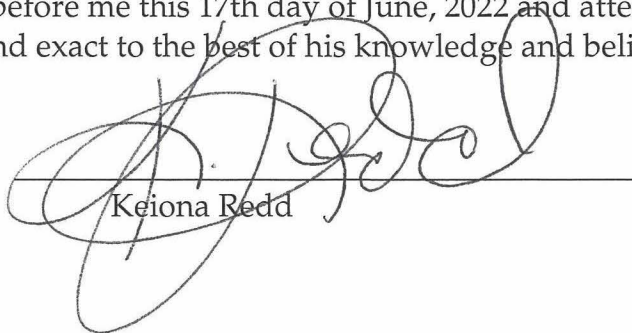 before me this 17th day of June, 2022 and atte
nd exact to the best of his knowledge and beli
K. Redd
Keiona Redd